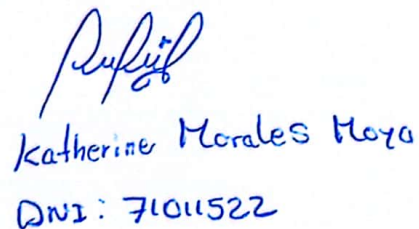 Katherine Morales Moya
DNI: 71011522